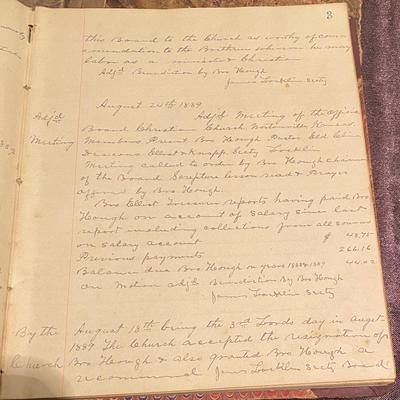 3
this Board to the Church as worthy of com
mendation to the Brethren wherever he may
labor as a minister & Christian
Adj'd Benediction by Bro Hough
James Secty
August 24th 1889
Adj'd Meeting
Adj'd Meeting of the Official
Board Christian Church, Nortonville, Kansas
Members Present Bro Hough, Pastor Eld
Deacons Elliot & Knapp, Secty
Meeting called to order by Bro Hough chairman
of the Board Scripture lesson read & Prayer
offered by Bro Hough.
Bro Elliot Treasurer reports having paid Bro
Hough on account of salary since last
report including collections from all sources
on salary account $ 48.75
Previous payments 266.16
Balance due Bro Hough on years 1888 & 1889 44.02
on Motion adj'd Benediction By Bro Hough
James Secty
By the Church
August 18th being the 3rd Lords day in August
1889 The Church accepted the resignation of
Bro Hough & also granted Bro Hough a
James Secty Board